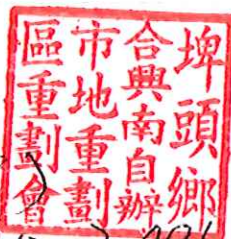 埤頭鄉
合興南自辦
市地重劃
區重劃會